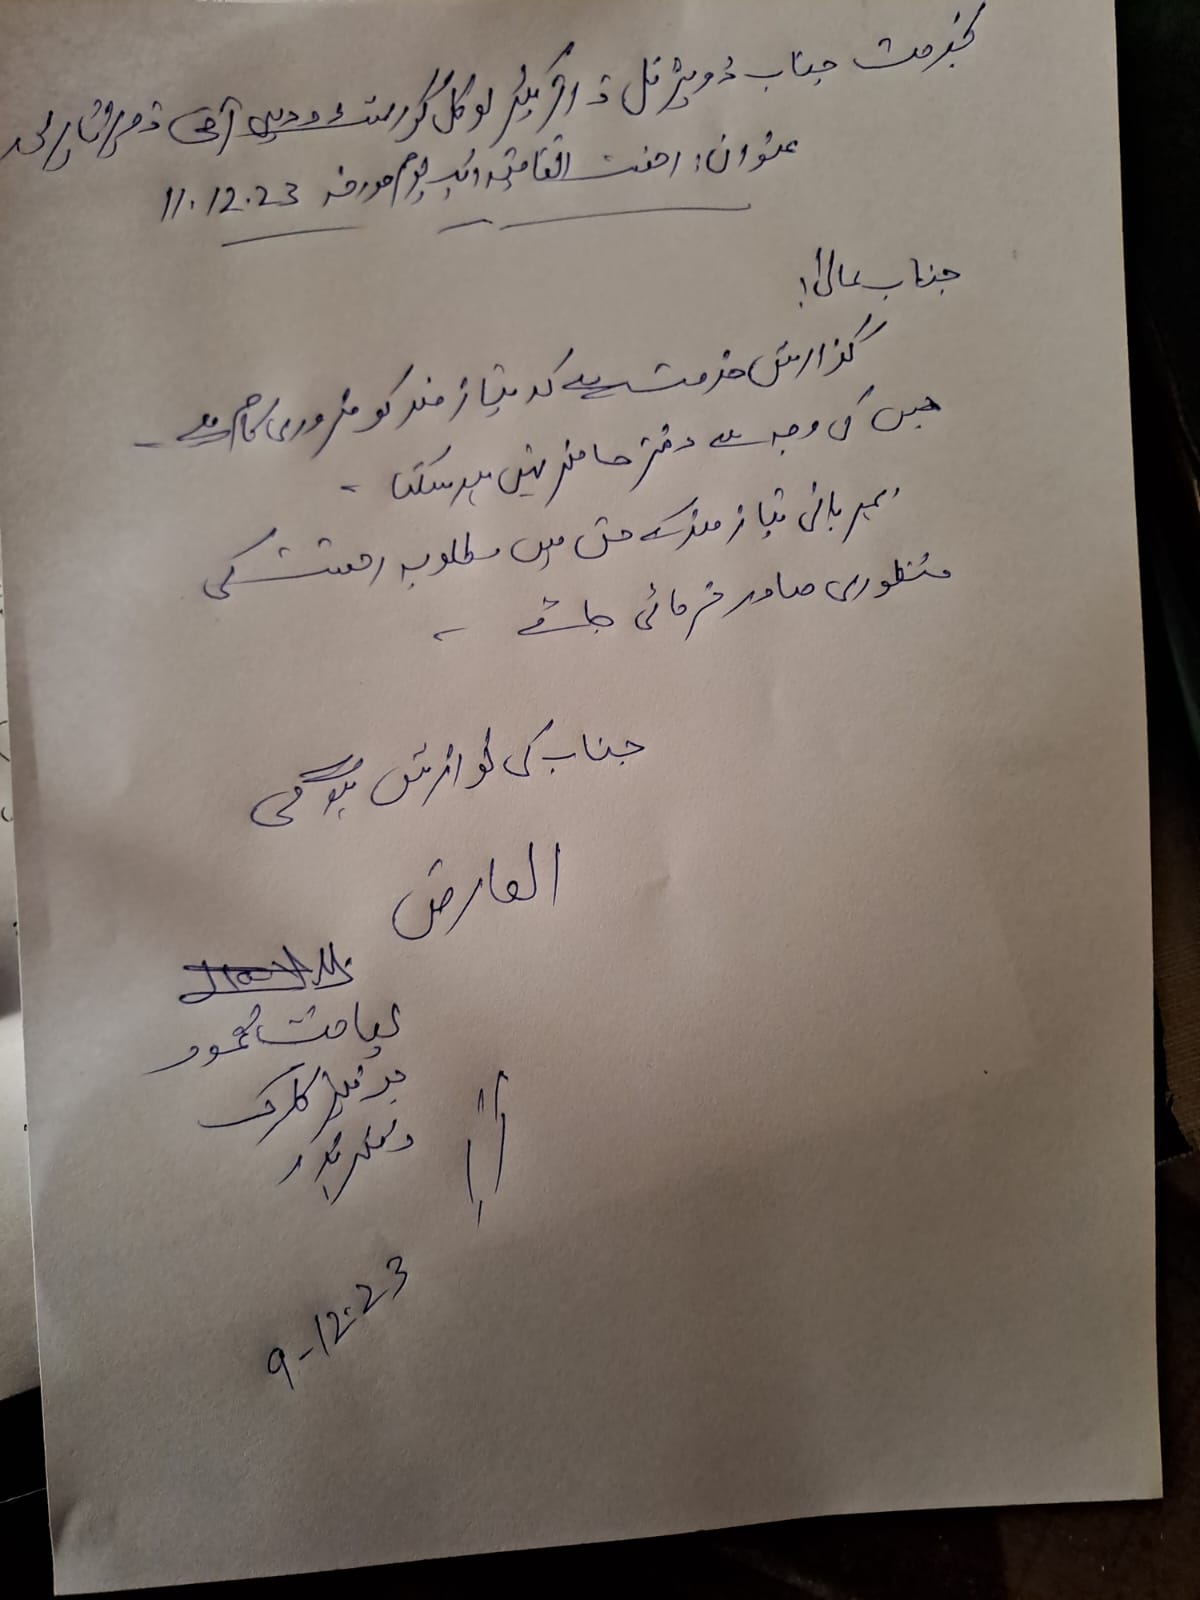 بخدمت جناب ڈویژنل ڈائریکٹر لوکل گورنمنٹ و دیہی ترقی
عنوان: رخصت اتفاقیہ ایک یوم مورخہ 11.12.23
جناب عالی!
گذارش خدمت ہے کہ نیاز مند کو ضروری کام ہے ۔
جس کی وجہ سے دفتر حاضر نہیں ہو سکتا ۔
بمہربانی نیاز مند کے حق میں مطلوبہ رخصت کی
منظوری صادر فرمائی جائے ۔
جناب کی نوازش ہوگی
العارض
محمود
جونیئر کلرک
دفتر
9-12-23